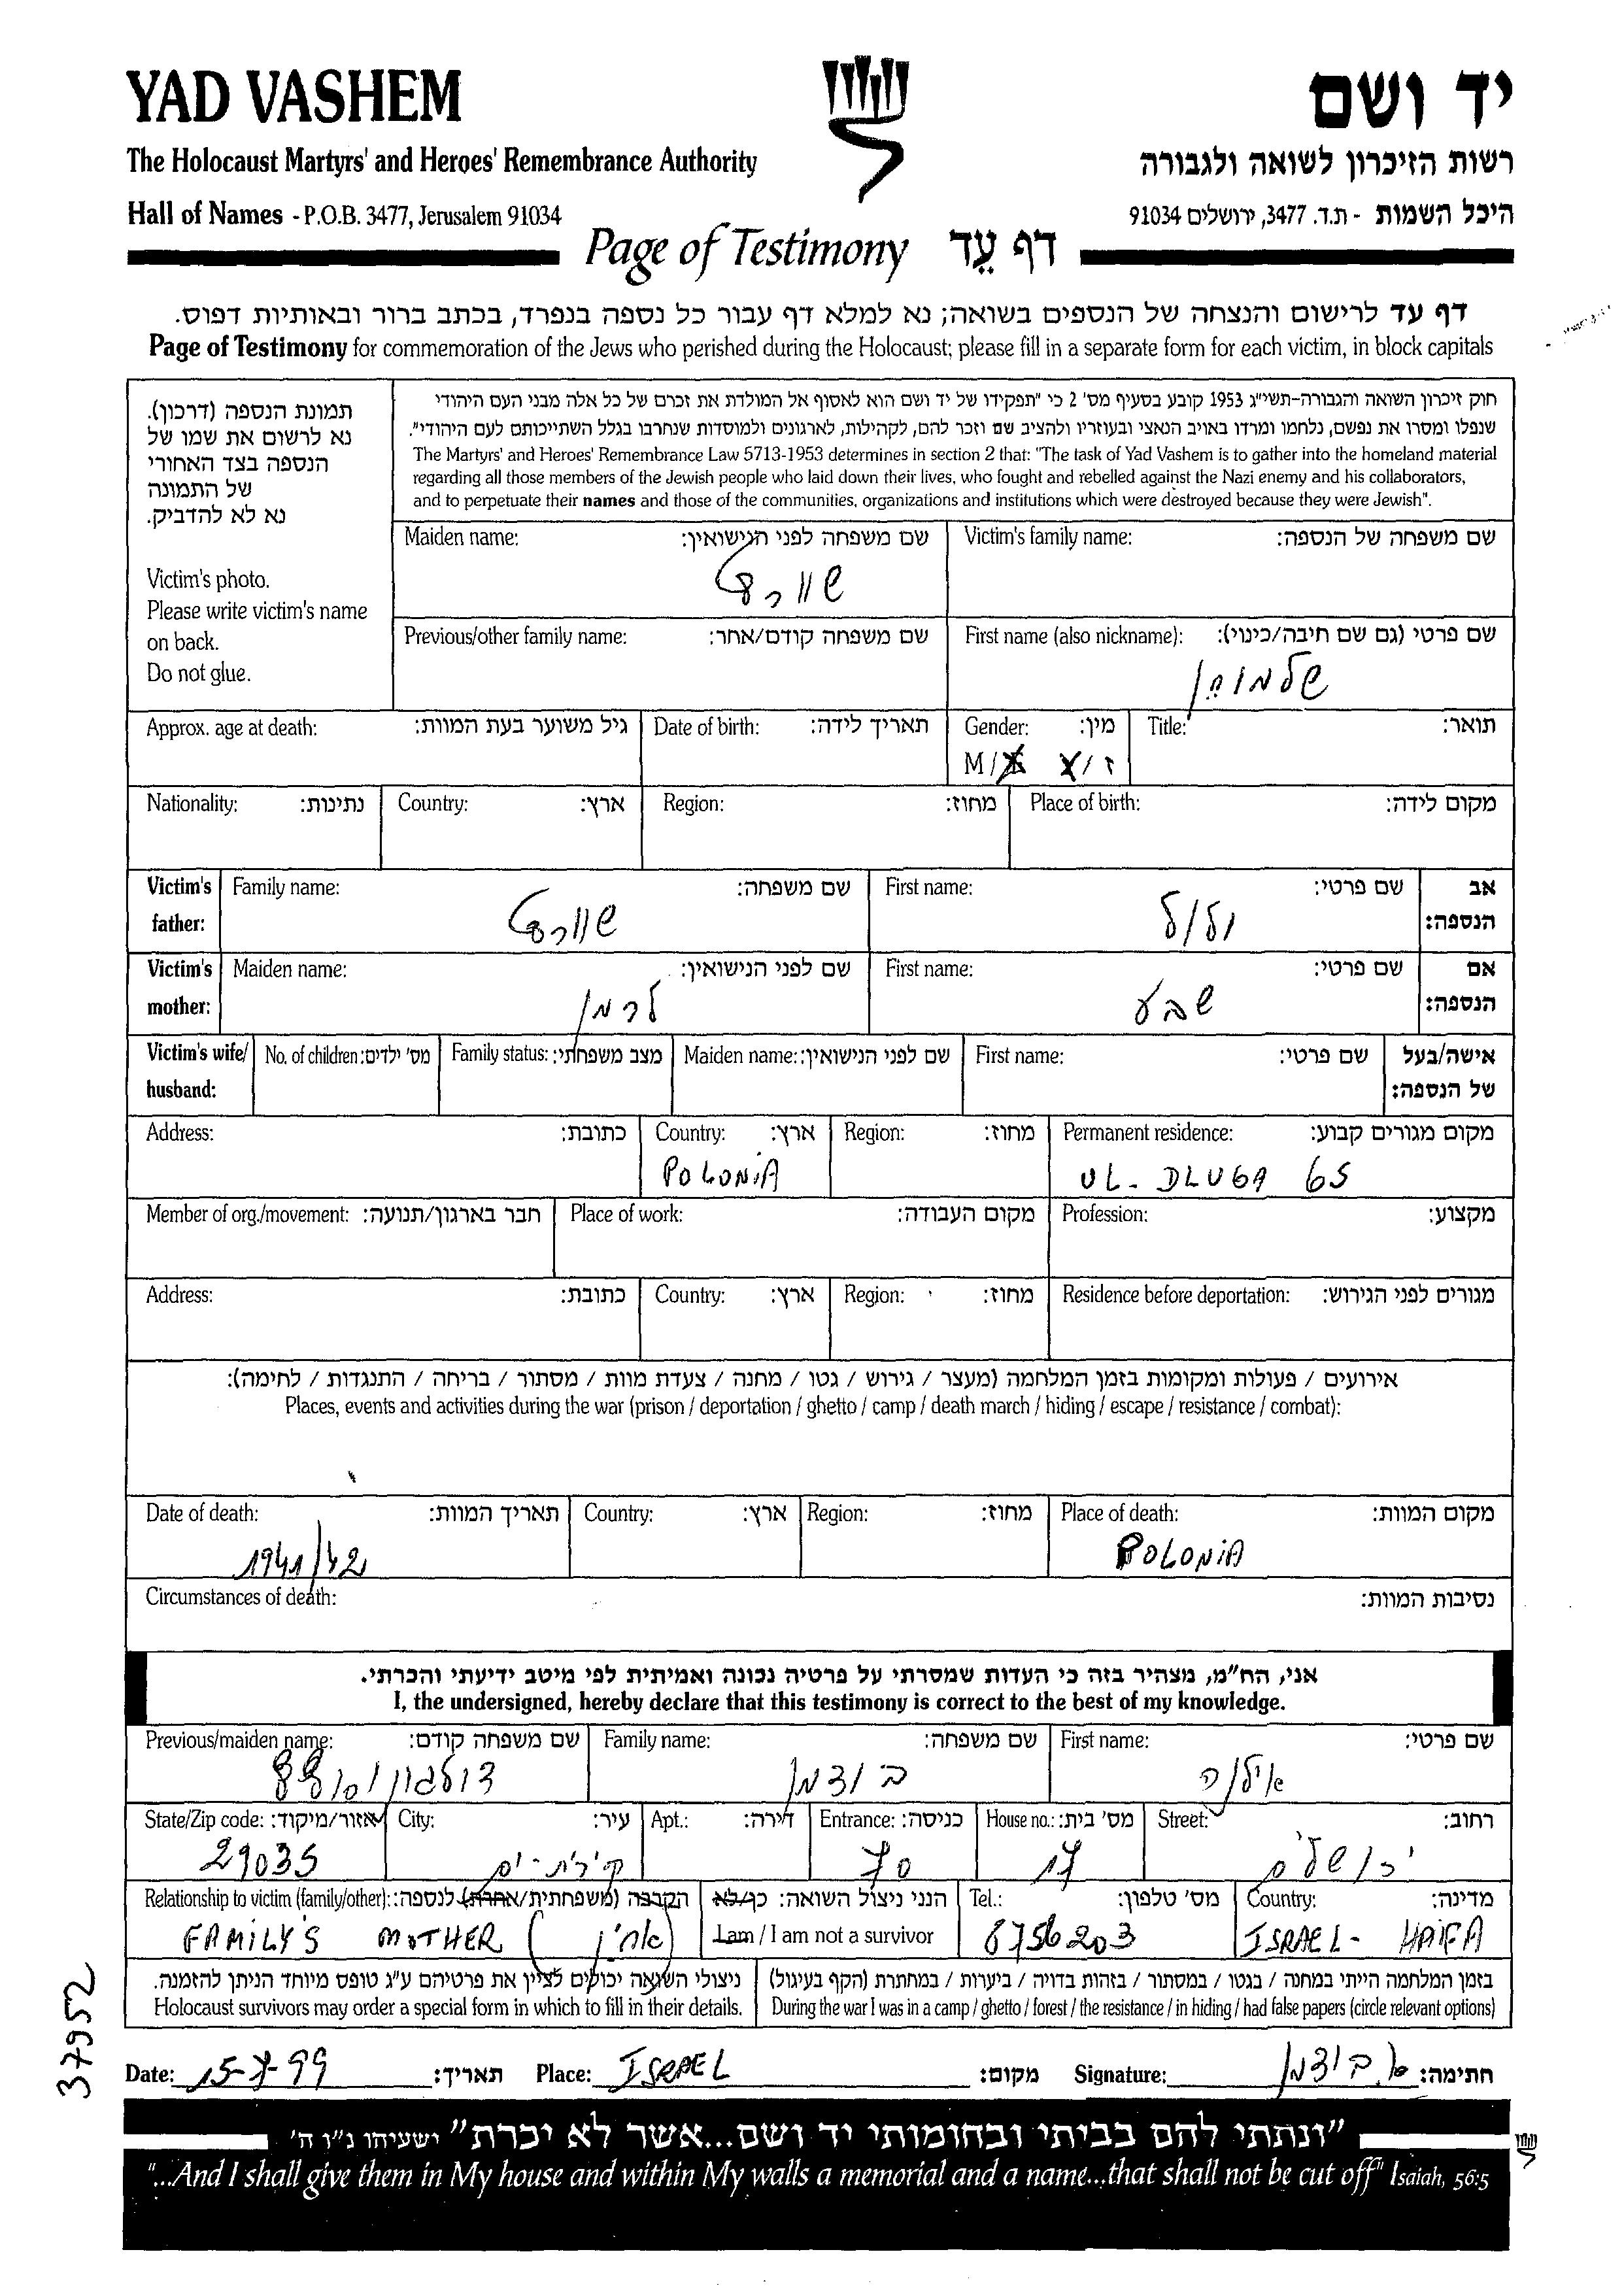 YAD VASHEM
יד ושם
The Holocaust Martyrs' and Heroes' Remembrance Authority
רשות הזיכרון לשואה ולגבורה
Hall of Names - P.O.B. 3477, Jerusalem 91034
היכל השמות - ת.ד. 3477, ירושלים 91034
Page of Testimony דף עֵד
דף עד לרישום והנצחה של הנספים בשואה; נא למלא דף עבור כל נספה בנפרד, בכתב ברור ובאותיות דפוס.
Page of Testimony for commemoration of the Jews who perished during the Holocaust; please fill in a separate form for each victim, in block capitals
תמונת הנספה (דרכון).
נא לרשום את שמו של
הנספה בצד האחורי
של התמונה
נא לא להדביק.
Victim's photo.
Please write victim's name
on back.
Do not glue.
חוק זיכרון השואה והגבורה-תשי"ג 1953 קובע בסעיף מס' 2 כי "תפקידו של יד ושם הוא לאסוף אל המולדת את זכרם של כל אלה מבני העם היהודי
שנפלו ומסרו את נפשם, נלחמו ומרדו באויב הנאצי ובעוזריו ולהציב שם וזכר להם, לקהילות, לארגונים ולמוסדות שנחרבו בגלל השתייכותם לעם היהודי".
The Martyrs' and Heroes' Remembrance Law 5713-1953 determines in section 2 that: "The task of Yad Vashem is to gather into the homeland material
regarding all those members of the Jewish people who laid down their lives, who fought and rebelled against the Nazi enemy and his collaborators,
and to perpetuate their names and those of the communities, organizations and institutions which were destroyed because they were Jewish".
Maiden name: שם משפחה לפני הנישואין:
Victim's family name: שם משפחה של הנספה:
שוורץ
Previous/other family name: שם משפחה קודם/אחר:
First name (also nickname): שם פרטי (גם שם חיבה/כינוי):
Approx. age at death: גיל משוער בעת המוות:
Date of birth: תאריך לידה:
Gender: מין:
Title: תואר:
M/F ז/נ
Nationality: נתינות:
Country: ארץ:
Region: מחוז:
Place of birth: מקום לידה:
Victim's father: Family name: שם משפחה:
First name: שם פרטי: אב הנספה:
שוורץ
Victim's mother: Maiden name: שם לפני הנישואין:
First name: שם פרטי: אם הנספה:
לרמן
שבע
Victim's wife/ husband: No. of children: מס' ילדים:
Family status: מצב משפחתי:
Maiden name: שם לפני הנישואין:
First name: שם פרטי: אישה/בעל של הנספה:
Address: כתובת:
Country: ארץ:
Region: מחוז:
Permanent residence: מקום מגורים קבוע:
POLONIA
UL- DLUGA 65
Member of org./movement: חבר בארגון/תנועה:
Place of work: מקום העבודה:
Profession: מקצוע:
Address: כתובת:
Country: ארץ:
Region: מחוז:
Residence before deportation: מגורים לפני הגירוש:
אירועים / פעולות ומקומות בזמן המלחמה (מעצר / גירוש / גטו / מחנה / צעדת מוות / מסתור / בריחה / התנגדות / לחימה):
Places, events and activities during the war (prison / deportation / ghetto / camp / death march / hiding / escape / resistance / combat):
Date of death: תאריך המוות:
Country: ארץ:
Region: מחוז:
Place of death: מקום המוות:
1941/42
POLONIA
Circumstances of death: נסיבות המוות:
אני, הח"מ, מצהיר בזה כי העדות שמסרתי על פרטיה נכונה ואמיתית לפי מיטב ידיעתי והכרתי.
I, the undersigned, hereby declare that this testimony is correct to the best of my knowledge.
Previous/maiden name: שם משפחה קודם:
Family name: שם משפחה:
First name: שם פרטי:
בוצמן
אילנה
State/Zip code: אזור/מיקוד:
City: עיר:
Apt.: דירה:
Entrance: כניסה:
House no.: מס' בית:
Street: רחוב:
29035
קירית-ים
70
17
ירושלים
Relationship to victim (family/other): הקרבה (משפחתית/אחרת) לנספה:
הנני ניצול השואה: כן/לא
Tel.: מס' טלפון:
Country: מדינה:
FAMILY'S MOTHER
I am / I am not a survivor
8756203
ISRAEL- HAIFA
ניצולי השואה יכולים לציין את פרטיהם ע"ג טופס מיוחד הניתן להזמנה.
Holocaust survivors may order a special form in which to fill in their details.
בזמן המלחמה הייתי במחנה / בגטו / במסתור / בזהות בדויה / ביערות / במחתרת (הקף בעיגול)
During the war I was in a camp / ghetto / forest / the resistance / in hiding / had false papers (circle relevant options)
Date: 15-7-99 תאריך:
Place: ISRAEL מקום:
Signature: א. בוצמן חתימה:
37952
"ונתתי להם בביתי ובחומותי יד ושם...אשר לא יכרת" ישעיהו נ"ו ה'
"...And I shall give them in My house and within My walls a memorial and a name...that shall not be cut off" Isaiah, 56:5